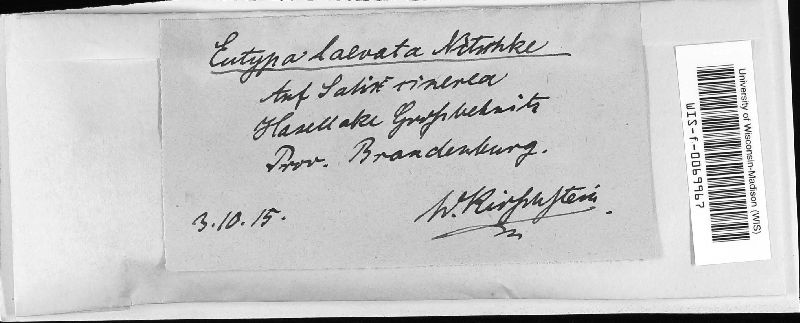 Eutypa laevata Nitschke
Auf Salix cinerea
Hasellake Großbehnitz
Prov. Brandenburg.
3.10.15.
W. Kirschstein
University of Wisconsin-Madison (WIS)
WIS-f-0069967